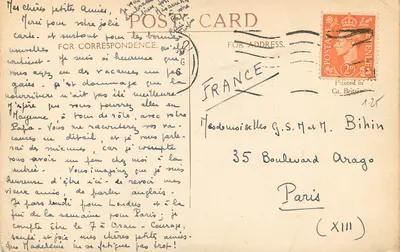 Mes chères petites Amies,
POST CARD
Merci pour votre jolie
carte et surtout pour les bonnes
FOR CORRESPONDENCE.
FOR ADDRESS.
nouvelles qu'elle
contient. Je suis si heureuse que
vous ayez eu des vacances un peu
gaies. Si dommage que la
nourriture n'ait pas été meilleure
J'espère que vous pourrez aller en
Mayenne, à tour de rôle, avec votre
Papa. Vous me raconterez vos va-
cances en détail, et je vous parle-
rai des miennes, car je compte
vous avoir un peu chez moi à la
rentrée. Vous imaginez que je suis
heureuse d'être ici de revoir mes
vieux amis, de parler anglais.
Je pars lundi pour Londres et à la
fin de la semaine pour Paris; je
compte être le 7 à Oran. Courage,
mes chères petites amies
que Madeleine ne se fatigue pas trop!
POSTAGE
REVENUE
Printed in
Gt. Britain
1.25
FRANCE
Mesdemoiselles G. S. M et M. Bihin
35 Boulevard Arago
Paris
(XIII)